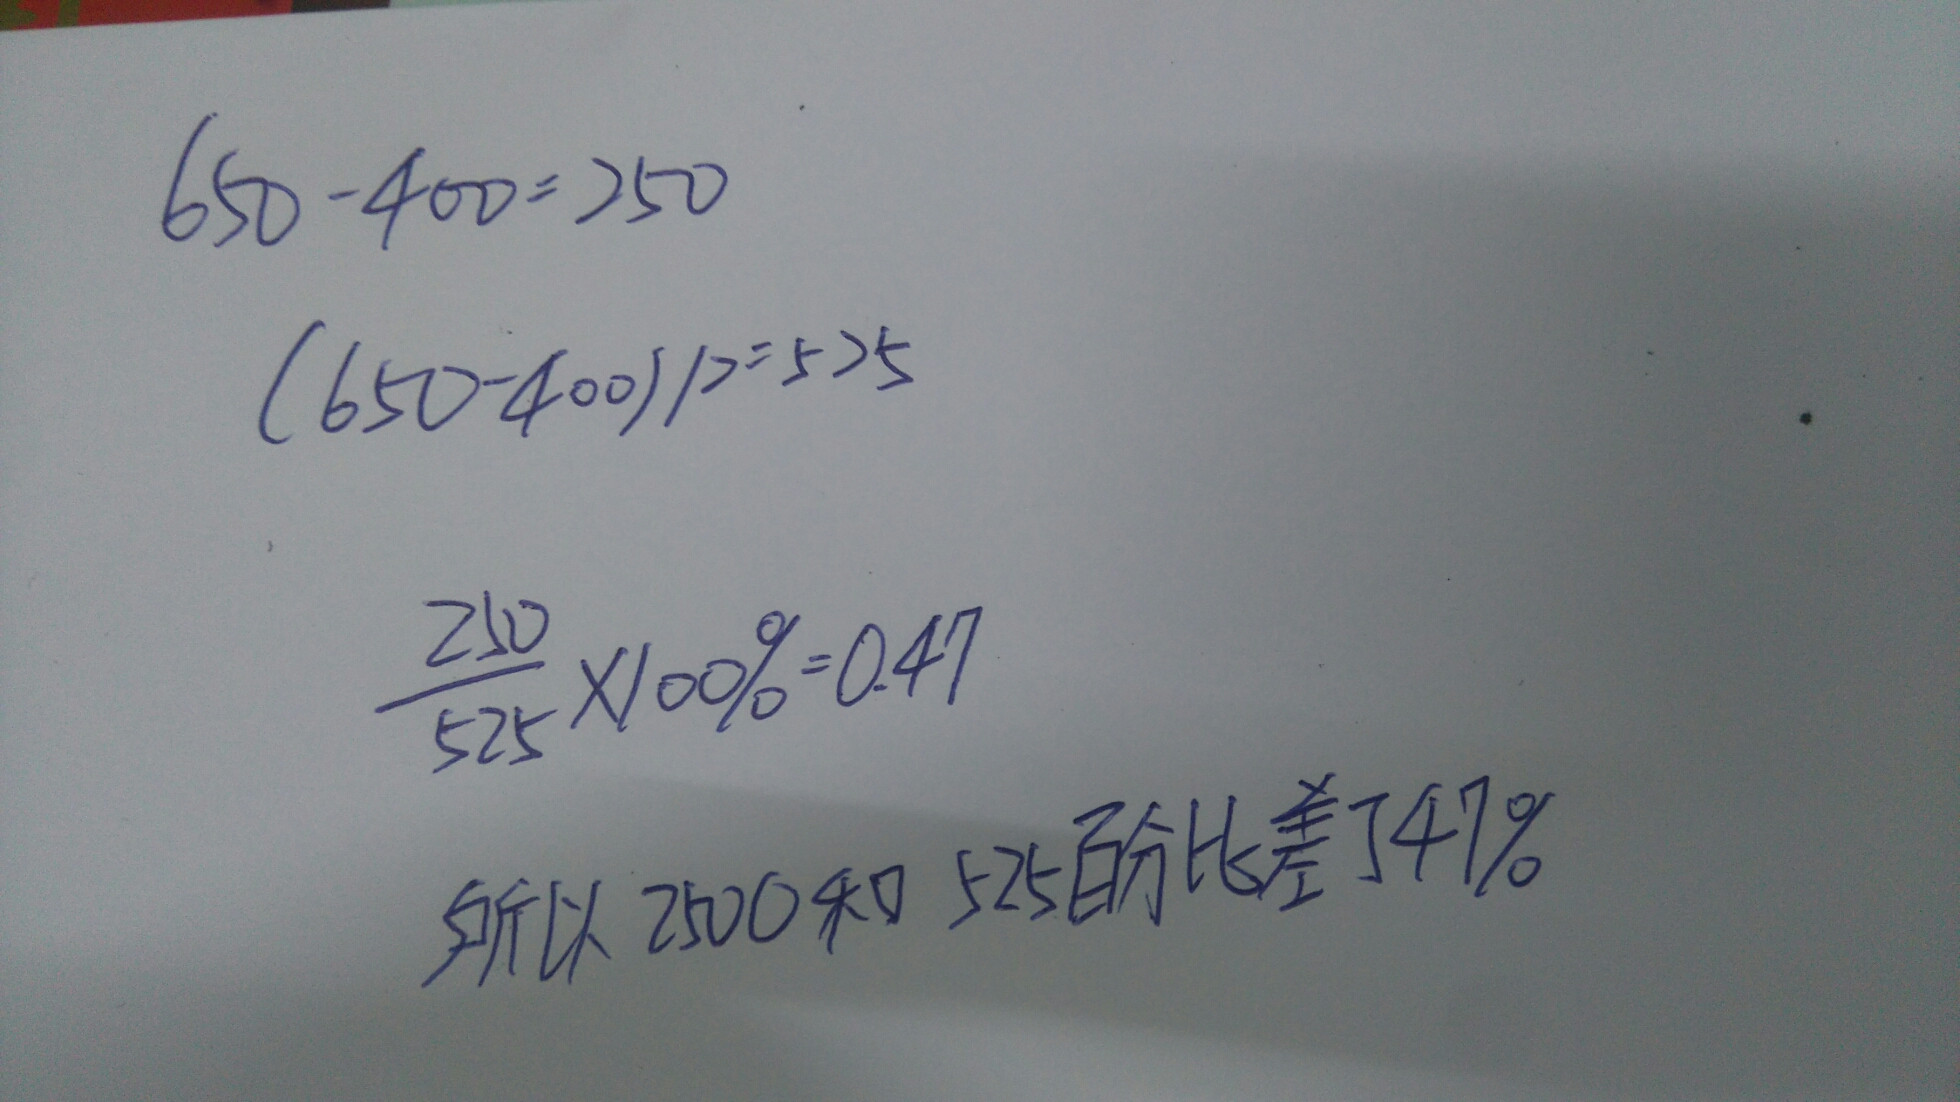 650-400=250
(650-400)/2=525
250/525×100%=0.47
所以2500和525百分比差了47%